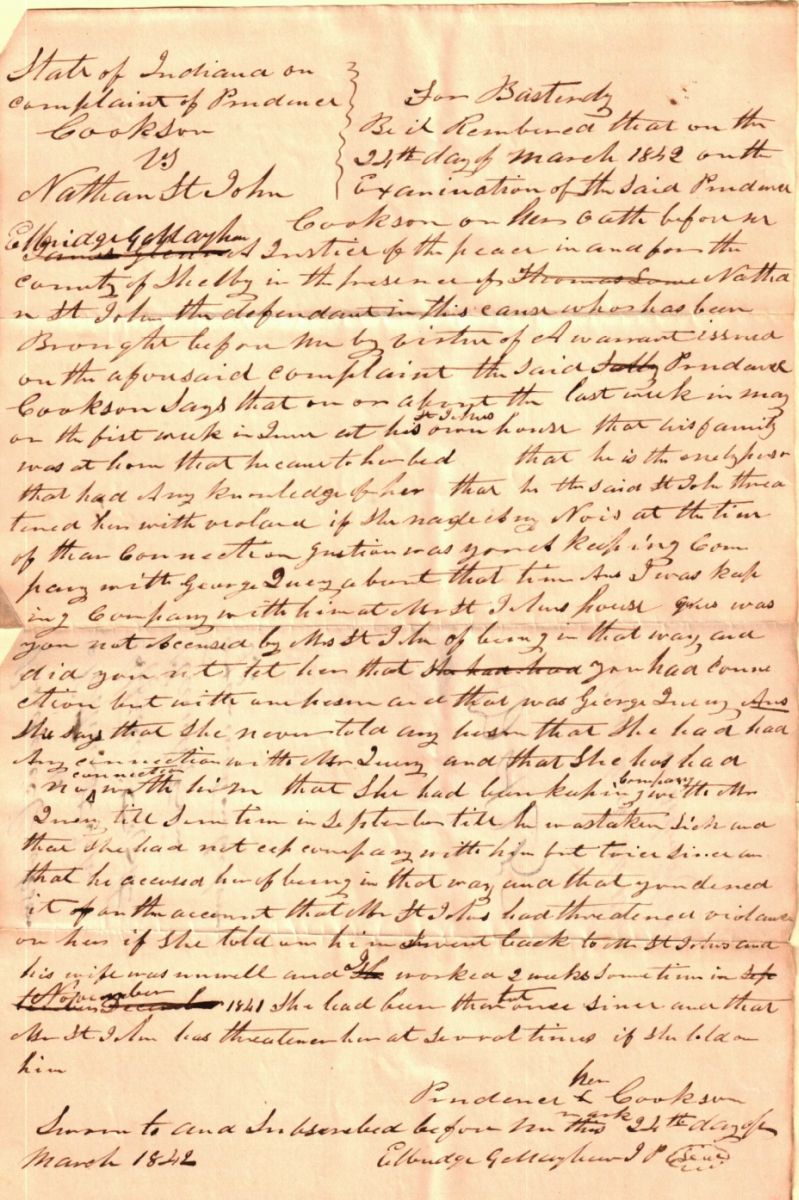 State of Indiana on
complaint of Prudence
Cookson
VS
Nathan St John
For Basterdy
Be it Rembered that on the
24th day of march 1842 on the
Examination of the said Prudence
Cookson on her oath before me
Elbridge Gallagher
A Justice of the peace in and for the
county of Shelby in the presence of Thomas Natha
n St John the defendant in this cause who has been
Brought before me by virtue of A warrant issued
on the aforesaid complaint the said Prudence
Cookson Says that on or about the last week in may
on the fist week in June at his St Johns own house that his family
was at hom that he came to her bed that he is the onely person
that had Any knowledge of her that he the said St John threa
tened her with violence if she made Any Nois at the time
of thear Connection Question was you not keeping Com
pany with George Quey about that time Ans I was keep
ing Company with him at Mr St Johns house Ques was
you not Accused by Mrs St John of being in that way and
did you not tel her that she had had you had conne
ction but with one person and that was George Quey Ans
She Says that She never told any person that She had had
Any connection with Mr Quey and that She has had
no connection with him that She had been keeping company with Mr
Quey till Some time in September till he was taken Sick and
that She had not cep company with him but twice Since
that he accused her of being in that way and that you denied
it on the account that Mr St Johns had threatened violance
on her if She told on him I went back to Mr St Johns and
his wife was unwell and I worked 2 weeks Sometim in Sep
November December 1841 She had been thar but once Since and that
Mr St John has threatened her at Several times if She told on
him
Prudence her x mark Cookson
Sworn to and Subscribed before me this 24th day of
March 1842 Elbridge Gallagher J P Seal